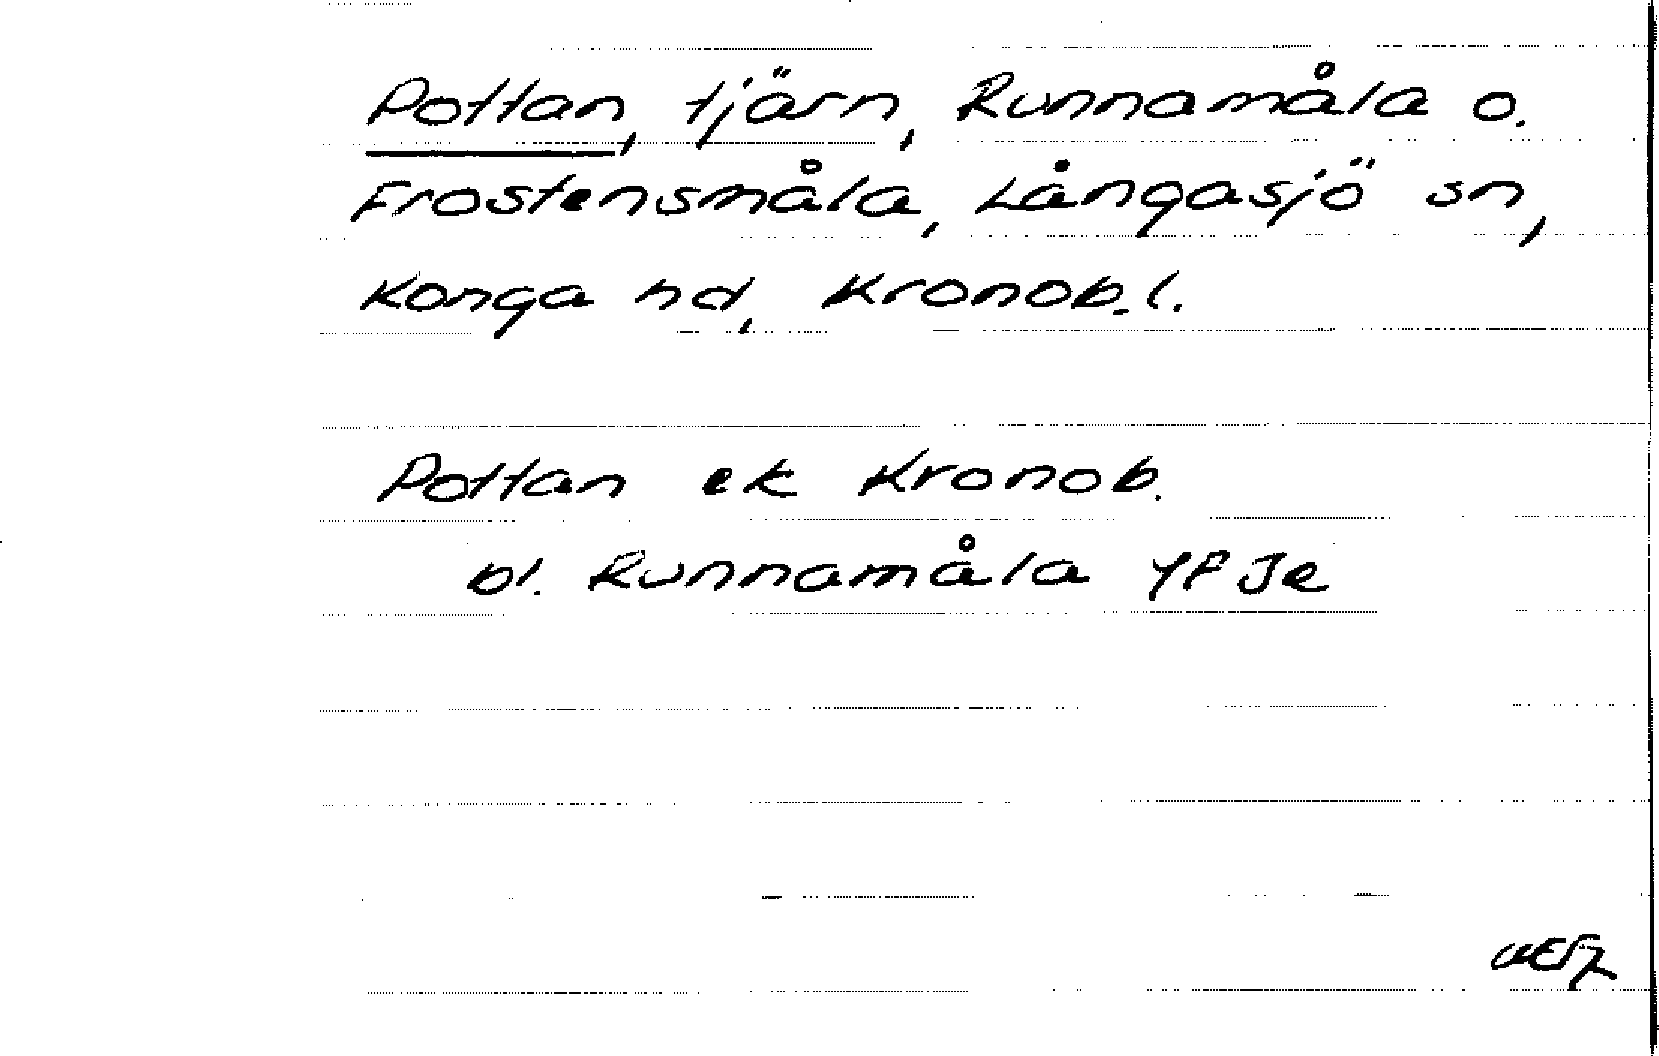 Pottan, tjärn, Runnamåla o.
Frostensmåla, Långasjö sn,
Konga hd, Kronob. l.
Pottan ek Kronob.
bl. Runnamåla YP Je